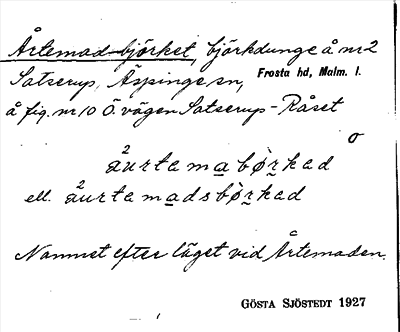 Årtemad-björket, björkdunge å nr 2
Satserup, Äspinge sn, Frosta hd, Malm. l.
å fig. nr 10 Ö. vägen Satserup - Råset
o
2
åurtamabørkad
ell. 2åurtamadsbørkad
Namnet efter läget vid Årtemaden.
GÖSTA SJÖSTEDT 1927